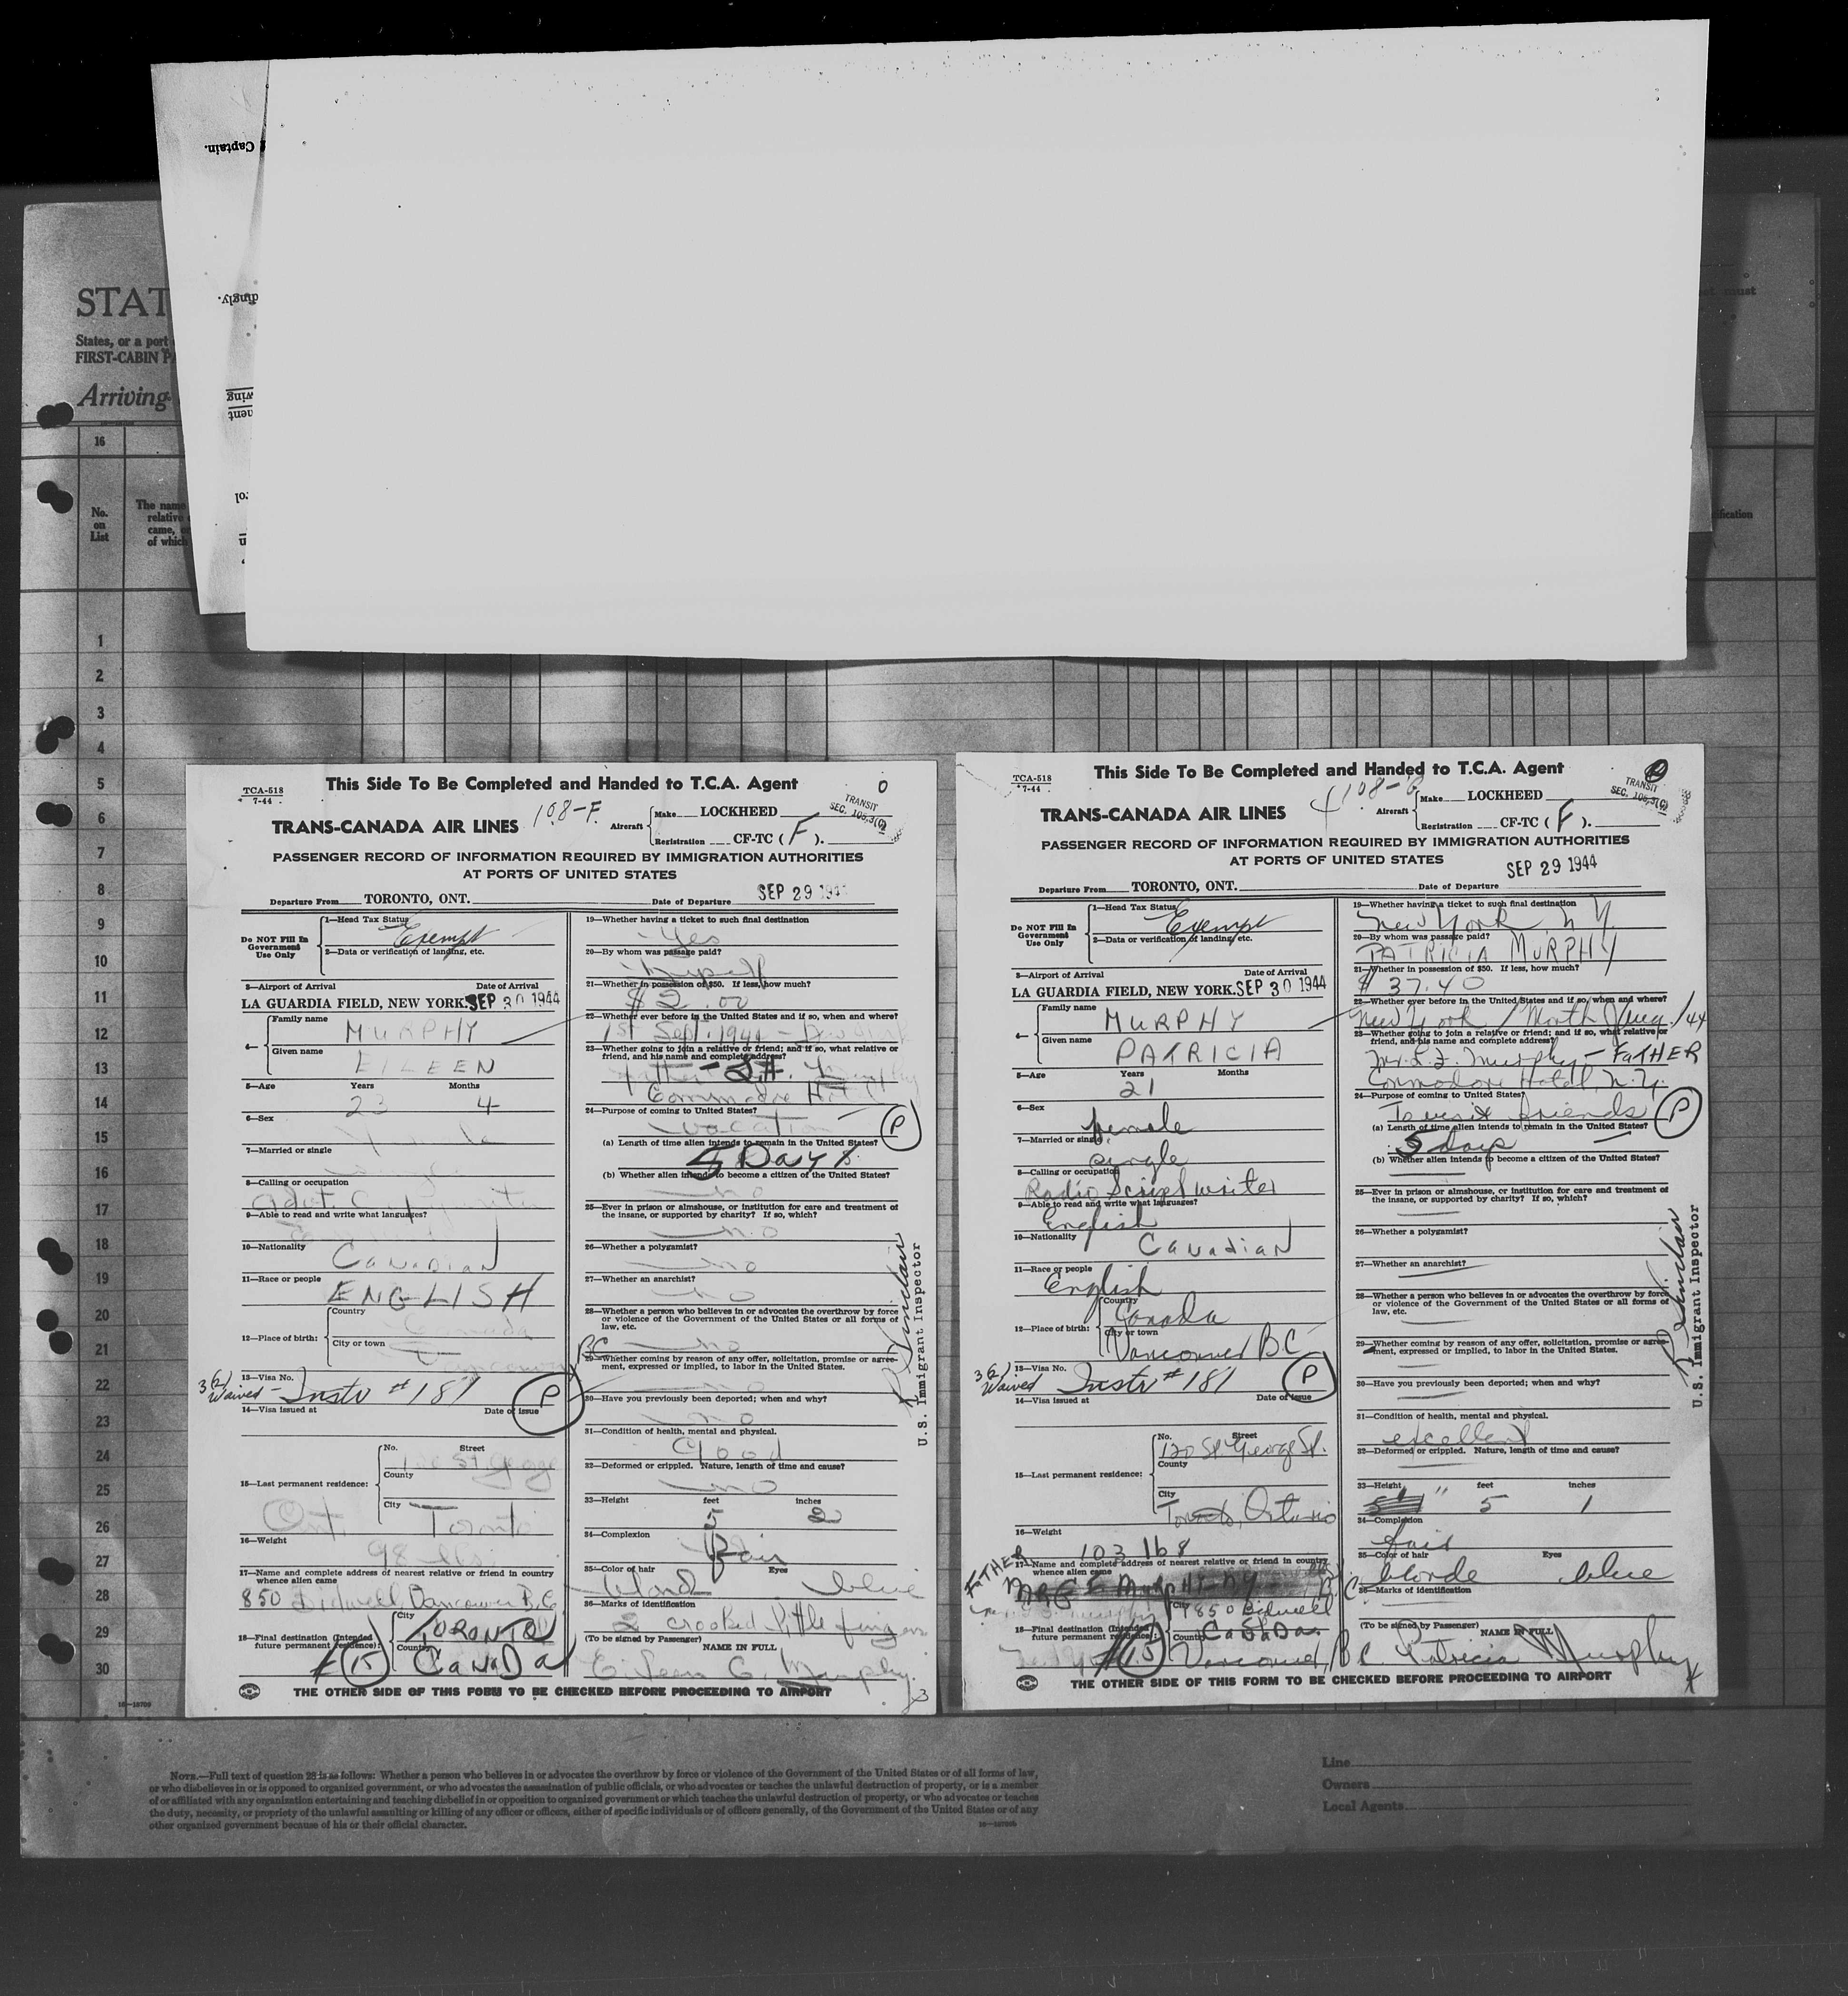 Captain.
dingly.
wing
ment
rol
STAT
States, or a port
FIRST-CABIN
Arriving
must
16
No.
on
List
The name
relative
came,
of which
1
2
3
4
5
6
7
8
9
10
11
12
13
14
15
16
17
18
19
20
21
22
23
24
25
26
27
28
29
30
TCA-518
7-44
This Side To Be Completed and Handed to T.C.A. Agent
TRANS-CANADA AIR LINES
108-F
Aircraft
Make LOCKHEED
Registration CF-TC ( F ).
TRANSIT
SEC.
PASSENGER RECORD OF INFORMATION REQUIRED BY IMMIGRATION AUTHORITIES
AT PORTS OF UNITED STATES
Departure From TORONTO, ONT. Date of Departure SEP 29
Do NOT Fill In
Government
Use Only
1—Head Tax Status
Exempt
2—Data or verification of landing, etc.
3—Airport of Arrival Date of Arrival
LA GUARDIA FIELD, NEW YORK. SEP 30 1944
4—
Family name
MURPHY
Given name
EILEEN
5—Age Years Months
23 4
6—Sex
7—Married or single
8—Calling or occupation
9—Able to read and write what languages?
10—Nationality
CANADIAN
11—Race or people
ENGLISH
12—Place of birth:
Country
Canada
City or town
Vancouver BC
13—Visa No.
Waived - Instr # 181 P
14—Visa issued at Date of issue
15—Last permanent residence:
No. Street
St George
County
City
Ont. Toronto
16—Weight
98 lbs.
17—Name and complete address of nearest relative or friend in country
whence alien came
850 Bidwell, Vancouver B.C.
18—Final destination (Intended
future permanent residence):
City
TORONTO
Country
CANADA
15
19—Whether having a ticket to such final destination
Yes
20—By whom was passage paid?
21—Whether in possession of $50. If less, how much?
$ 2.00
22—Whether ever before in the United States and if so, when and where?
1st Sept. 1944
23—Whether going to join a relative or friend; and if so, what relative or
friend, and his name and complete address?
Murphy
Commodore Hotel
24—Purpose of coming to United States?
vacation P
(a) Length of time alien intends to remain in the United States?
5 Days
(b) Whether alien intends to become a citizen of the United States?
no
25—Ever in prison or almshouse, or institution for care and treatment of
the insane, or supported by charity? If so, which?
no
26—Whether a polygamist?
no
27—Whether an anarchist?
no
28—Whether a person who believes in or advocates the overthrow by force
or violence of the Government of the United States or all forms of
law, etc.
no
29—Whether coming by reason of any offer, solicitation, promise or agree-
ment, expressed or implied, to labor in the United States.
no
30—Have you previously been deported; when and why?
no
31—Condition of health, mental and physical.
Good
32—Deformed or crippled. Nature, length of time and cause?
no
33—Height feet inches
5 2
34—Complexion
Fair
35—Color of hair Eyes
blond blue
36—Marks of identification
2 crooked little fingers
(To be signed by Passenger) NAME IN FULL
Eileen G. Murphy
U.S. Immigrant Inspector
THE OTHER SIDE OF THIS FORM TO BE CHECKED BEFORE PROCEEDING TO AIRPORT
TCA-518
7-44
This Side To Be Completed and Handed to T.C.A. Agent
TRANS-CANADA AIR LINES
Aircraft
Make LOCKHEED
Registration CF-TC ( F ).
TRANSIT
SEC.
PASSENGER RECORD OF INFORMATION REQUIRED BY IMMIGRATION AUTHORITIES
AT PORTS OF UNITED STATES
Departure From TORONTO, ONT. Date of Departure SEP 29 1944
Do NOT Fill In
Government
Use Only
1—Head Tax Status
Exempt
2—Data or verification of landing, etc.
3—Airport of Arrival Date of Arrival
LA GUARDIA FIELD, NEW YORK. SEP 30 1944
4—
Family name
MURPHY
Given name
PATRICIA
5—Age Years Months
21
6—Sex
female
7—Married or single
single
8—Calling or occupation
Radio Script writer
9—Able to read and write what languages?
English
10—Nationality
CANADIAN
11—Race or people
English
12—Place of birth:
Country
Canada
City or town
Vancouver BC
13—Visa No.
Waived Instr # 181 P
14—Visa issued at Date of issue
15—Last permanent residence:
No. Street
120 St. George St.
County
City
Toronto, Ontario
16—Weight
103 lbs
17—Name and complete address of nearest relative or friend in country
whence alien came
FATHER
850 Bidwell
18—Final destination (Intended
future permanent residence):
City
Country
CANADA
Vancouver, B.C.
19—Whether having a ticket to such final destination
New York N.Y.
20—By whom was passage paid?
PATRICIA MURPHY
21—Whether in possession of $50. If less, how much?
$ 37.40
22—Whether ever before in the United States and if so, when and where?
New York 1 Month Aug. /44
23—Whether going to join a relative or friend; and if so, what relative or
friend, and his name and complete address?
Murphy - FATHER
Commodore Hotel, N.Y.
24—Purpose of coming to United States?
To visit friends P
(a) Length of time alien intends to remain in the United States?
5 days
(b) Whether alien intends to become a citizen of the United States?
25—Ever in prison or almshouse, or institution for care and treatment of
the insane, or supported by charity? If so, which?
26—Whether a polygamist?
27—Whether an anarchist?
28—Whether a person who believes in or advocates the overthrow by force
or violence of the Government of the United States or all forms of
law, etc.
29—Whether coming by reason of any offer, solicitation, promise or agree-
ment, expressed or implied, to labor in the United States.
30—Have you previously been deported; when and why?
31—Condition of health, mental and physical.
excellent
32—Deformed or crippled. Nature, length of time and cause?
33—Height feet inches
5 1
34—Complexion
fair
35—Color of hair Eyes
blonde blue
36—Marks of identification
(To be signed by Passenger) NAME IN FULL
Patricia Murphy
U.S. Immigrant Inspector
THE OTHER SIDE OF THIS FORM TO BE CHECKED BEFORE PROCEEDING TO AIRPORT
NOTE.—Full text of question 28 is as follows: Whether a person who believes in or advocates the overthrow by force or violence of the Government of the United States or of all forms of law,
or who disbelieves in or is opposed to organized government, or who advocates the assassination of public officials, or who advocates or teaches the unlawful destruction of property, or is a member
of or affiliated with any organization entertaining and teaching disbelief in or opposition to organized government or which teaches the unlawful destruction of property, or who advocates or teaches
the duty, necessity, or propriety of the unlawful assaulting or killing of any officer or officers, either of specific individuals or of officers generally, of the Government of the United States or of any
other organized government because of his or their official character.
Line
Owners
Local Agents